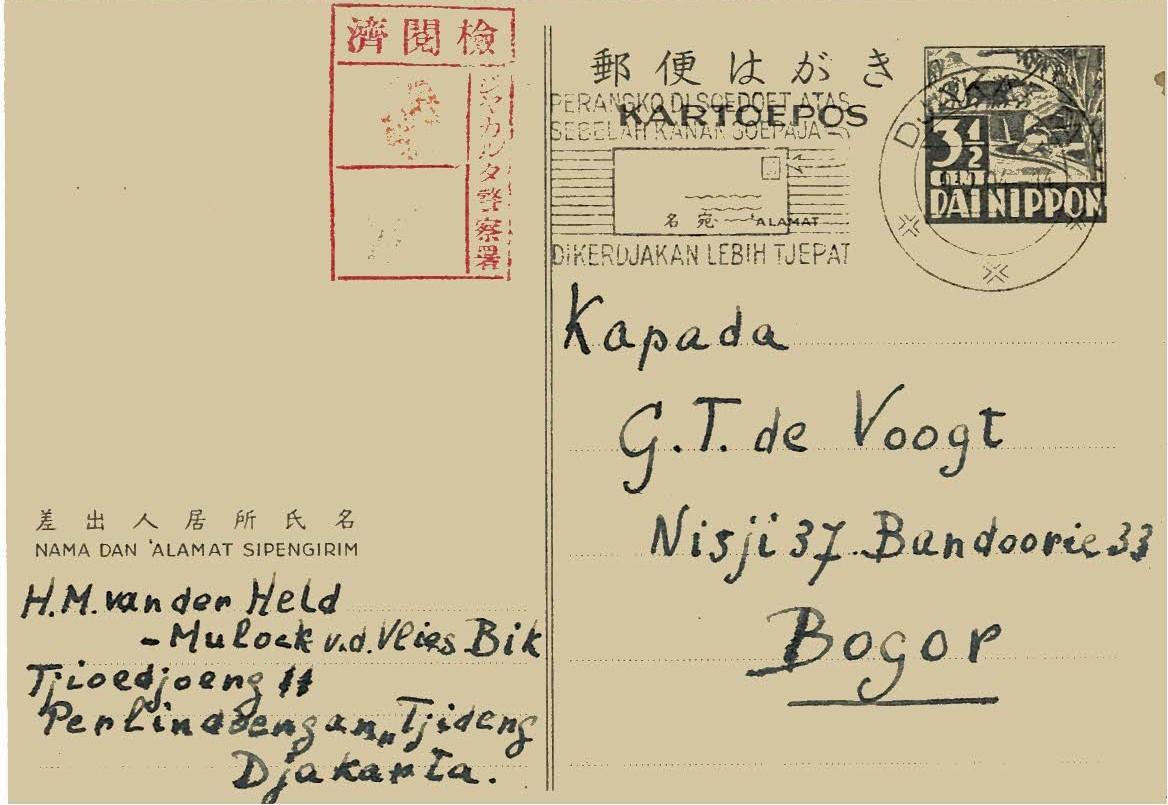 檢閲濟
ジャカルタ警察署
郵便はがき
KARTOEPOS
PERANGKO DI SOEDOET ATAS
SEBELAH KANAN SOEPAJA
名宛 'ALAMAT
DIKERDJAKAN LEBIH TJEPAT
3½
CENT
DAI NIPPON
Kapada
G.T. de Voogt
Nisji 37 Bandoorie 33
Bogor
差出人居所氏名
NAMA DAN 'ALAMAT SIPENGIRIM
H.M. van der Held
- Mulock v.d. Vlies Bik
Tjioedjoeng 11
Perlindoengan „Tjideng
Djakarta.